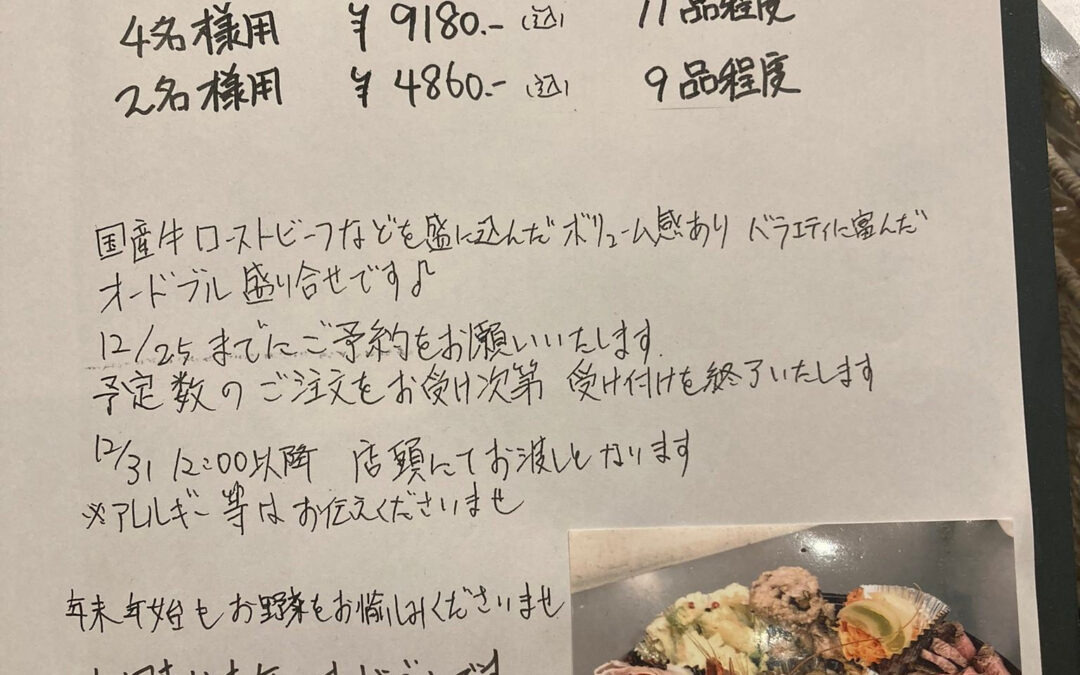 4名様用 ¥9180.-(込) 11品程度
2名様用 ¥4860.-(込) 9品程度
国産牛ローストビーフなどを盛に込んだボリューム感あり バラエティに富んだ
オードブル盛り合せです♪
12/25までにご予約をお願いいたします
予定数のご注文をお受け次第 受け付けを終了いたします
12/31 12:00以降 店頭にてお渡しとなります
※アレルギー等はお伝えくださいませ
年末年始もお野菜をお愉しみくださいませ